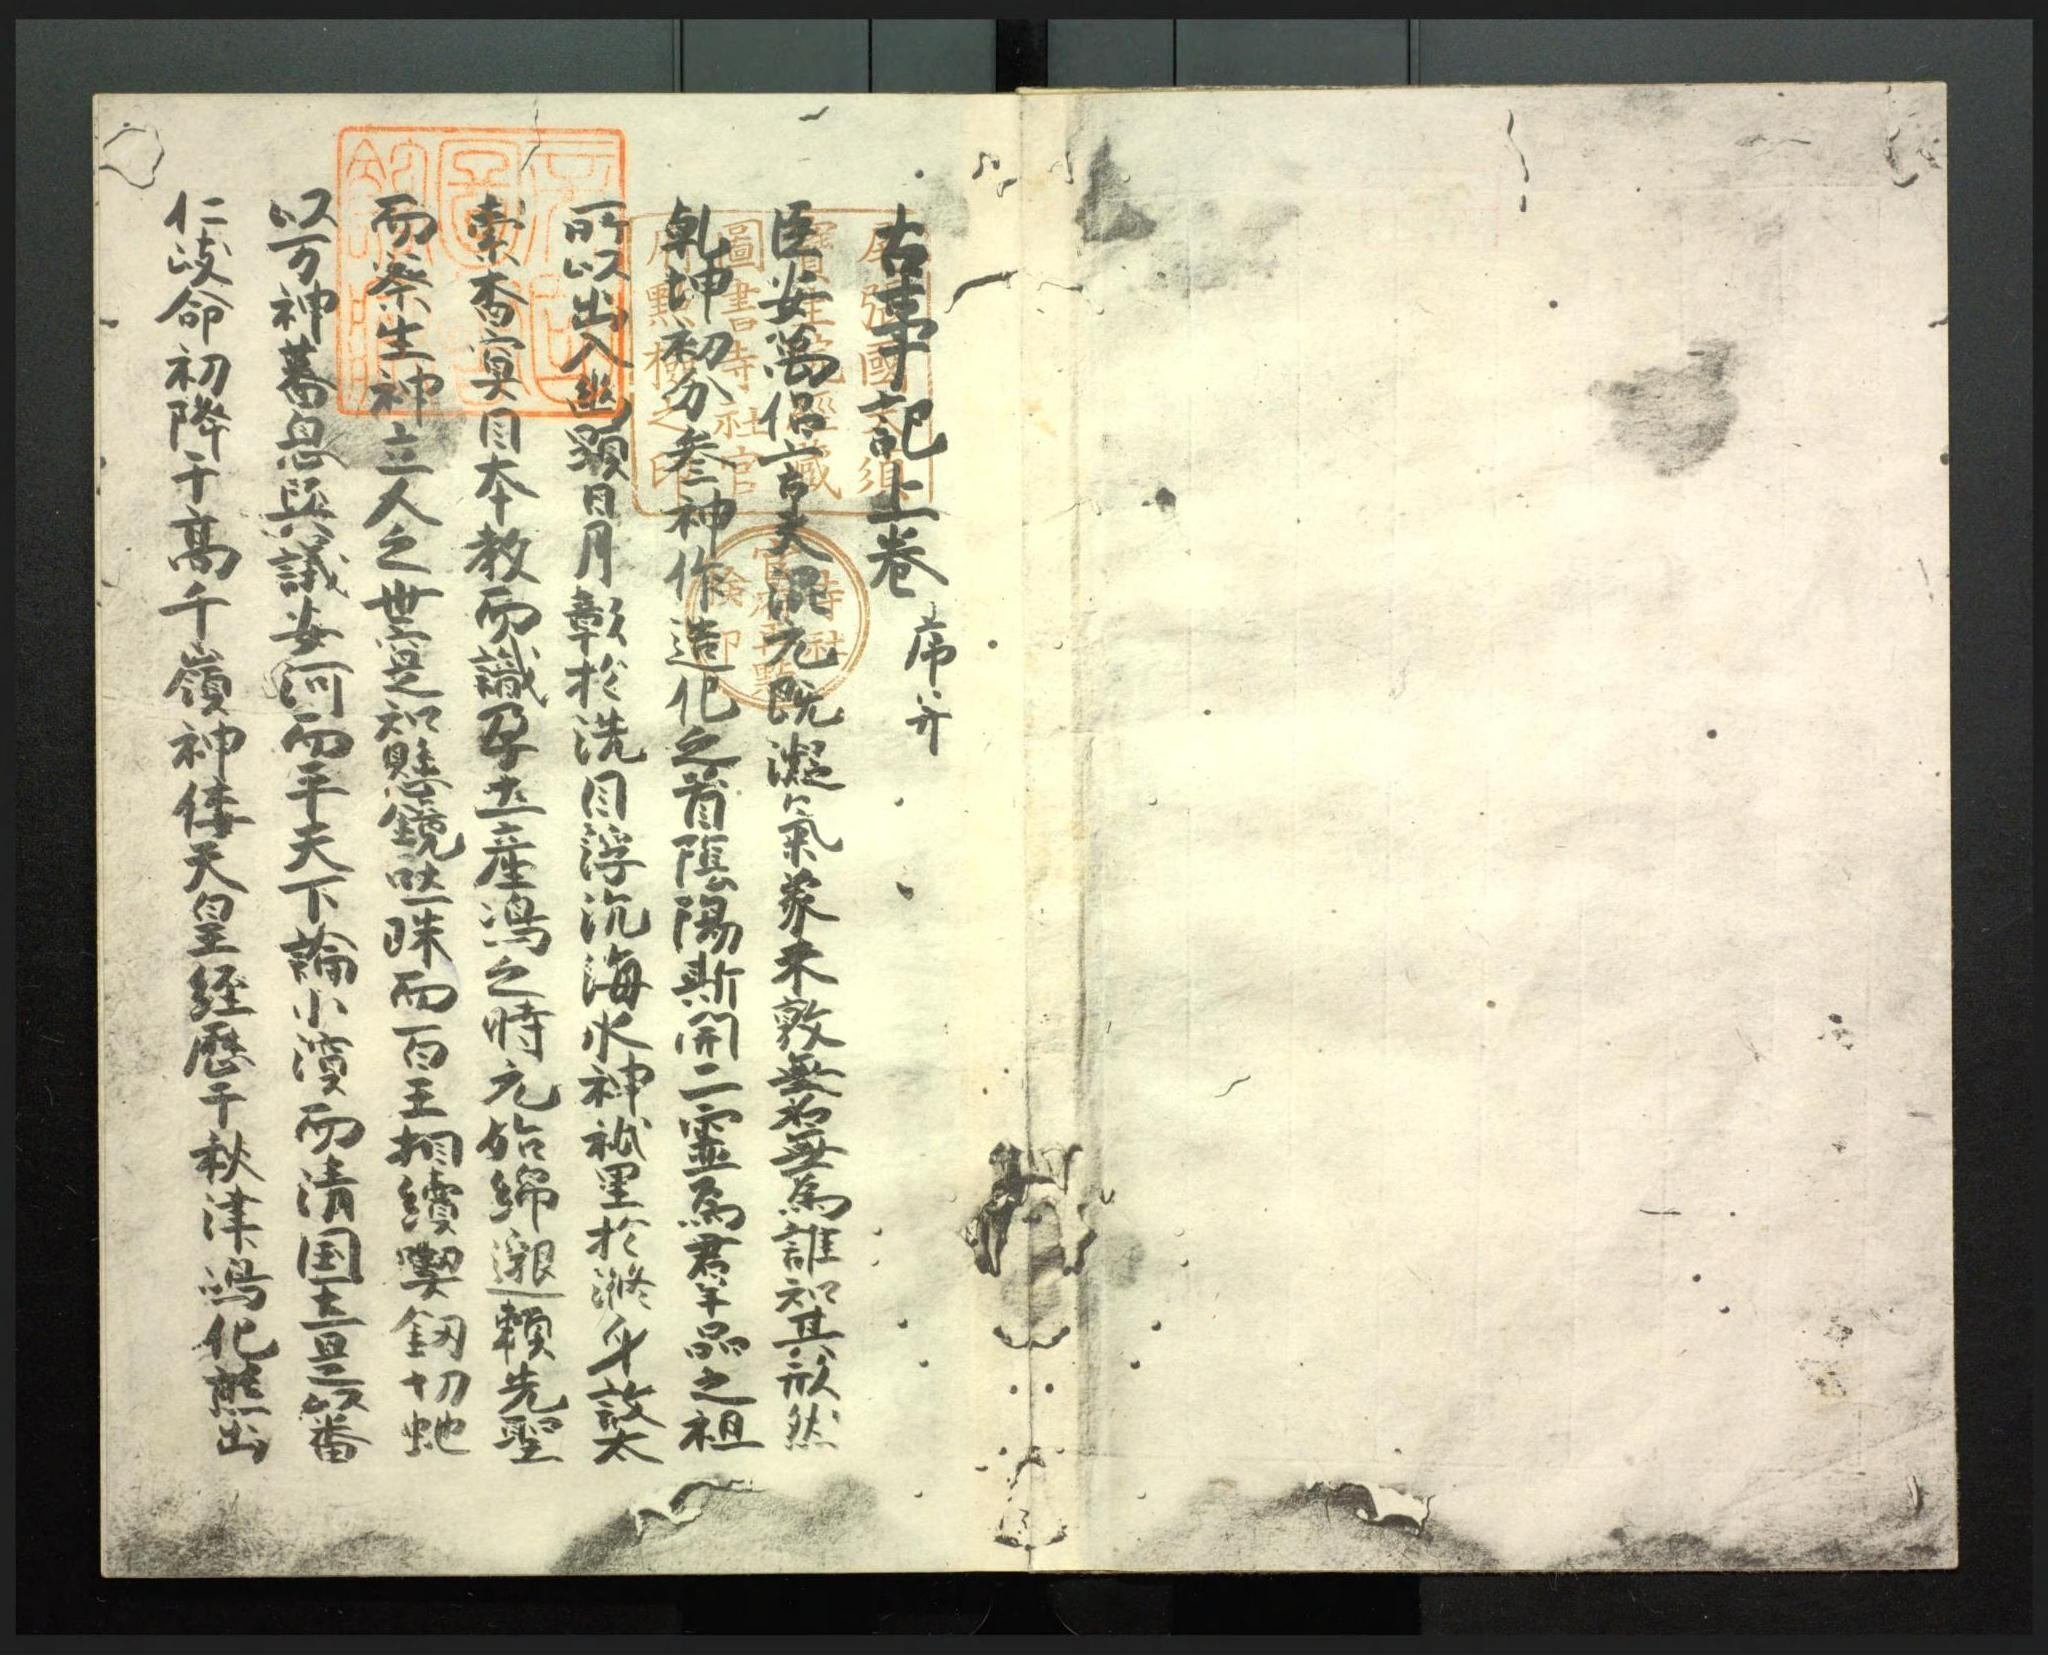 古事記上卷 序并
臣安萬侶言夫混元既凝氣象未敦無名無為誰知其形然
乾坤初分參神作造化之首陰陽斯開二靈為群品之祖
所以出入幽顯日月彰於洗目浮沉海水神祇呈於滌身故太
素杳冥因本教而識孕土産嶋之時元始綿邈頼先聖
而察生神立人之世寔知懸鏡吐珠而百王相續喫釼切蛇
以万神蕃息與議安河而平天下論小濱而清国土是以番
仁岐命初降于高千嶺神倭天皇経歴于秋津嶋化熊出
尾張國大須
寶生院經藏
圖書寺社官
府點檢之印
寺社
官府再點
檢印